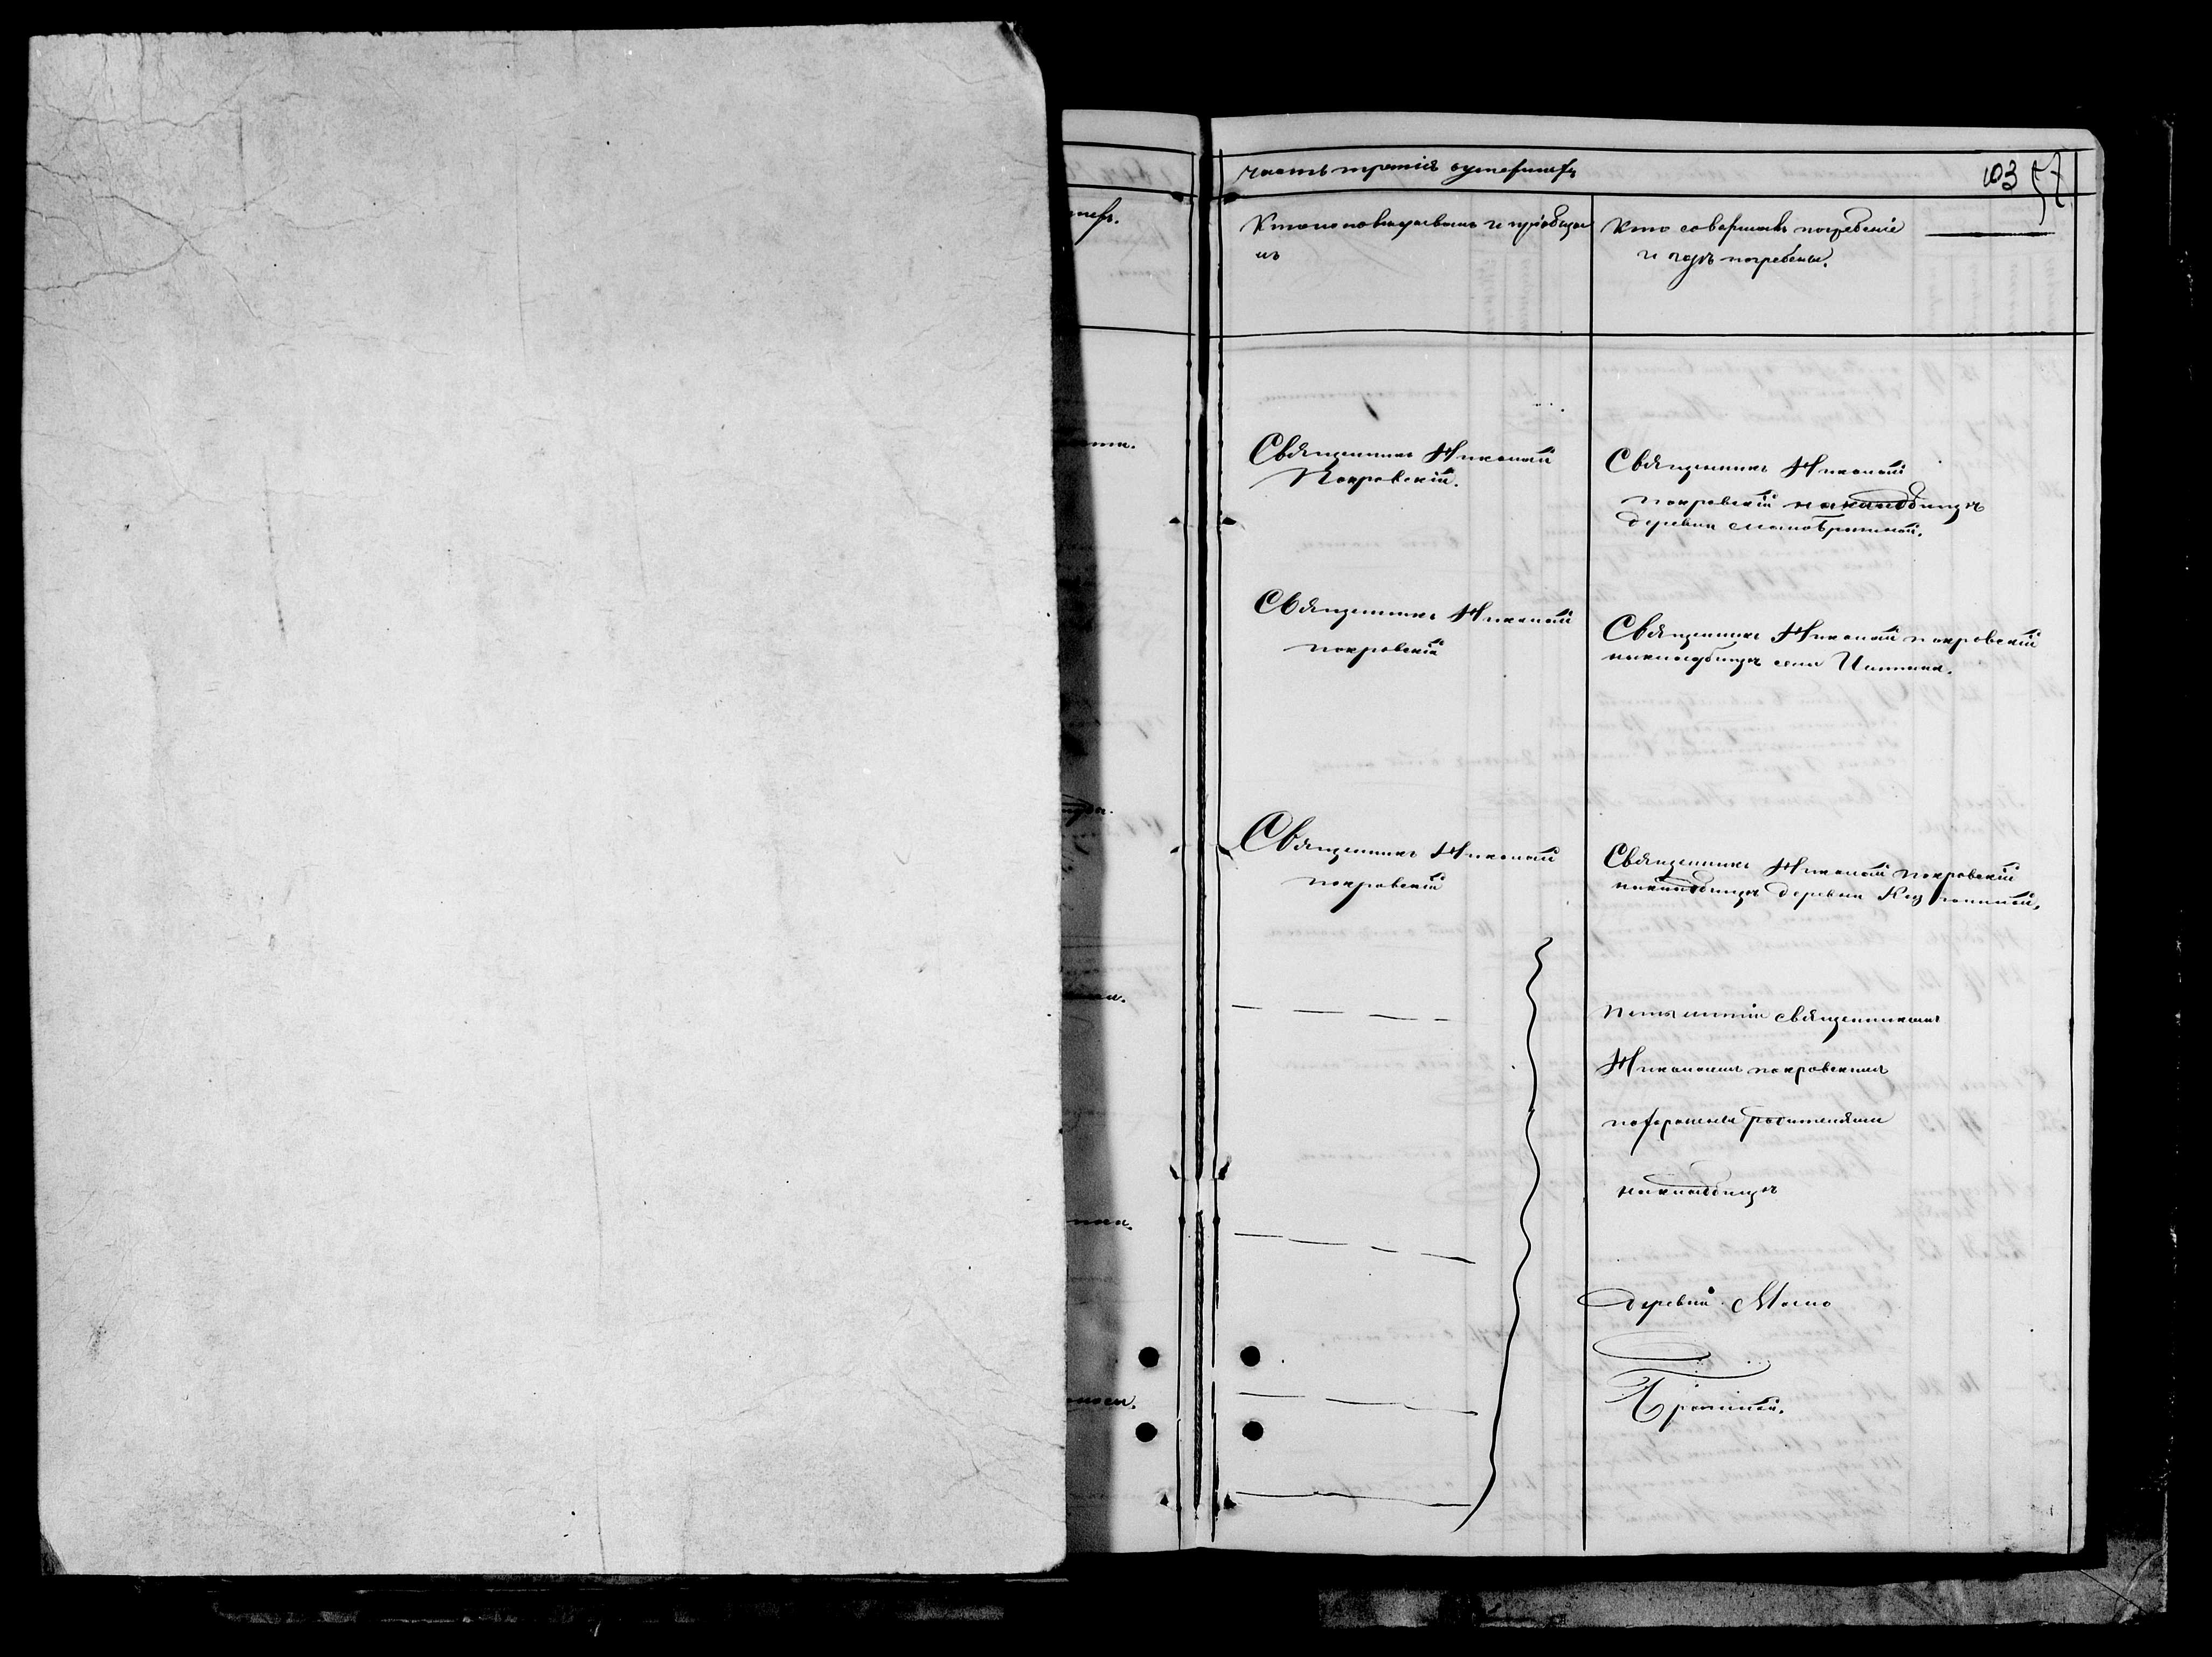 часть третія оумершихъ
103 57
Кто исповедывалъ и пріобщал
ъ
Кто совершалъ погребеніе
и гдѣ погребены.
Священникъ Николай
Покровскій.
Священникъ Николай
покровскій накладбищѣ
деревни Малобратиной.
Священникъ Николай
покровскій
Священникъ Николай покровскій
накладбищѣ села
Священникъ Николай
покровскій
Священникъ Николай покровскій
накладбищѣ деревни
священникомъ
Николаемъ покровскимъ
похоронены родителями
накладбищѣ
деревни Мало